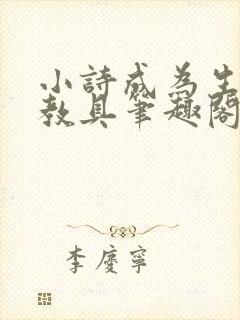 小詩成為生
教具筆趣閣
李慶寧